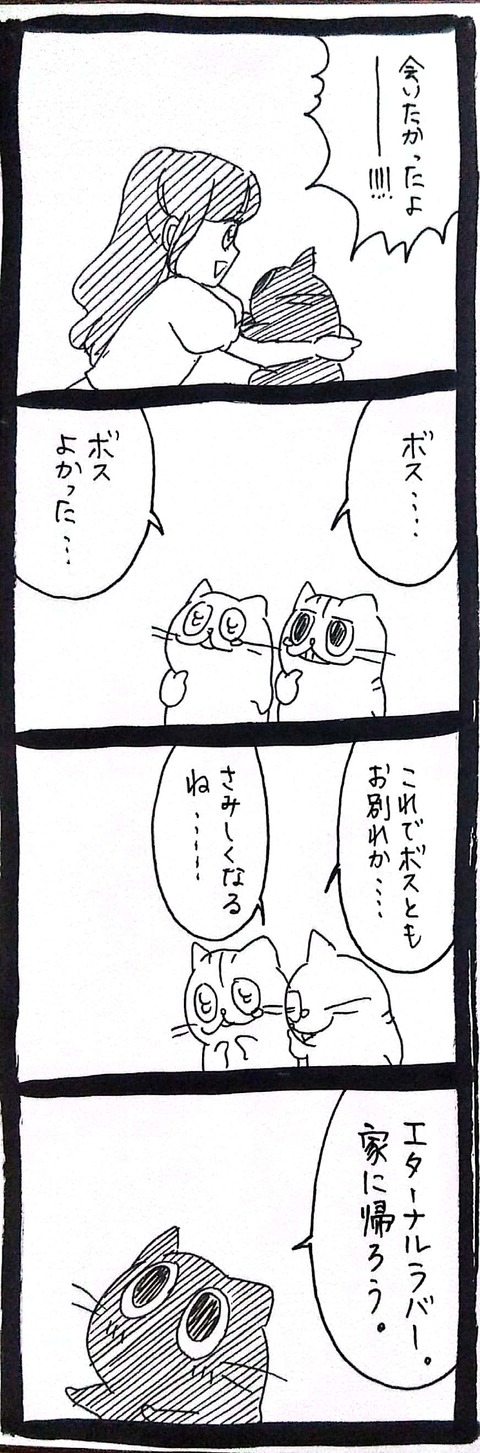 会いたかったよ
ーーー!!!!
ボス……
ボス
よかった…
これでボスとも
お別れか……
さみしくなる
ね……
エターナルラバー。
家に帰ろう。